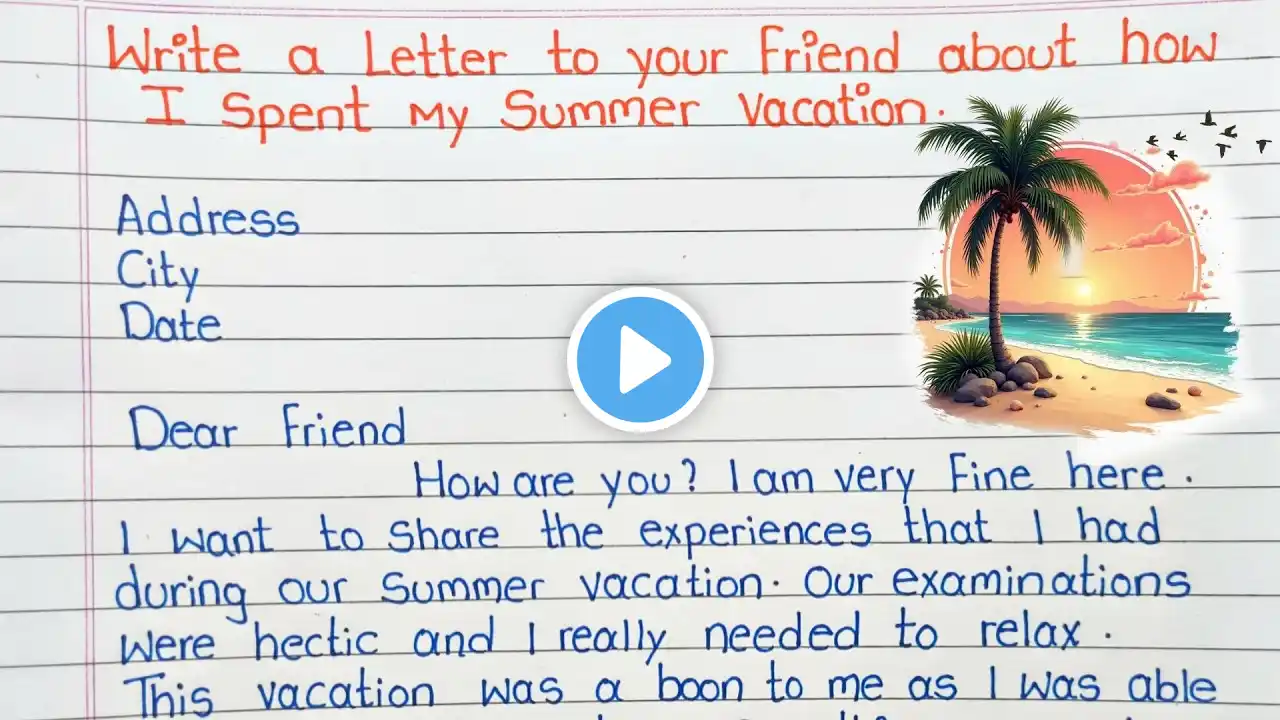 Write a Letter to your Friend about how
I Spent My Summer Vacation.
Address
City
Date
Dear Friend
How are you? I am very Fine here.
I want to Share the experiences that I had
during our Summer vacation. Our examinations
were hectic and I really needed to relax.
This vacation was a boon to me as I was able